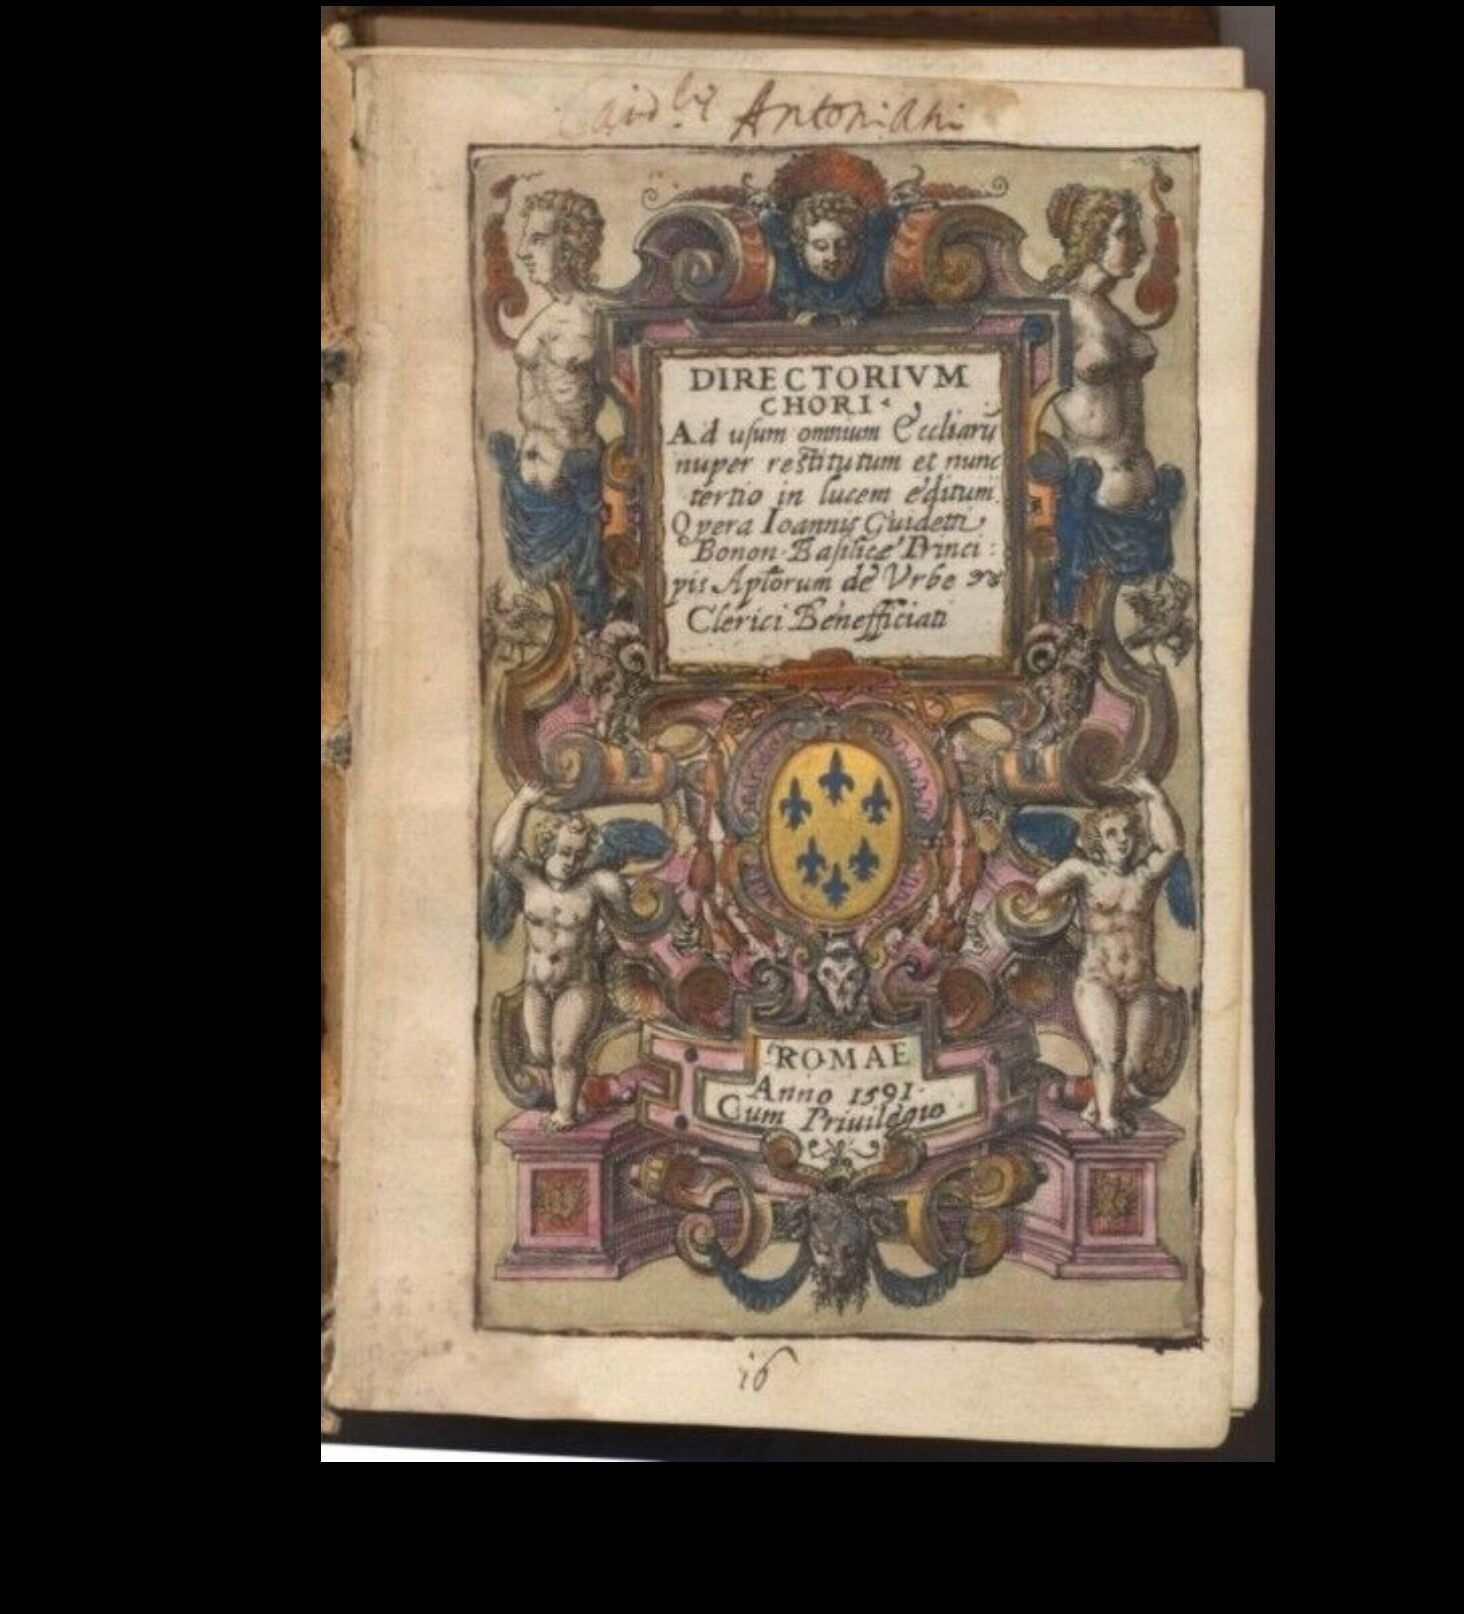 Card.lis Antoniani
DIRECTORIVM
CHORI.
Ad usum omnium Eccliarũ
nuper restitutum et nunc
tertio in lucem editum.
Opera Ioannis Guidetti
Bonon. Basilicę Princi:
pis Apłorum de Vrbe
Clerici Benefficiati
ROMAE
Anno 1591.
Cum Priuilegio
i6